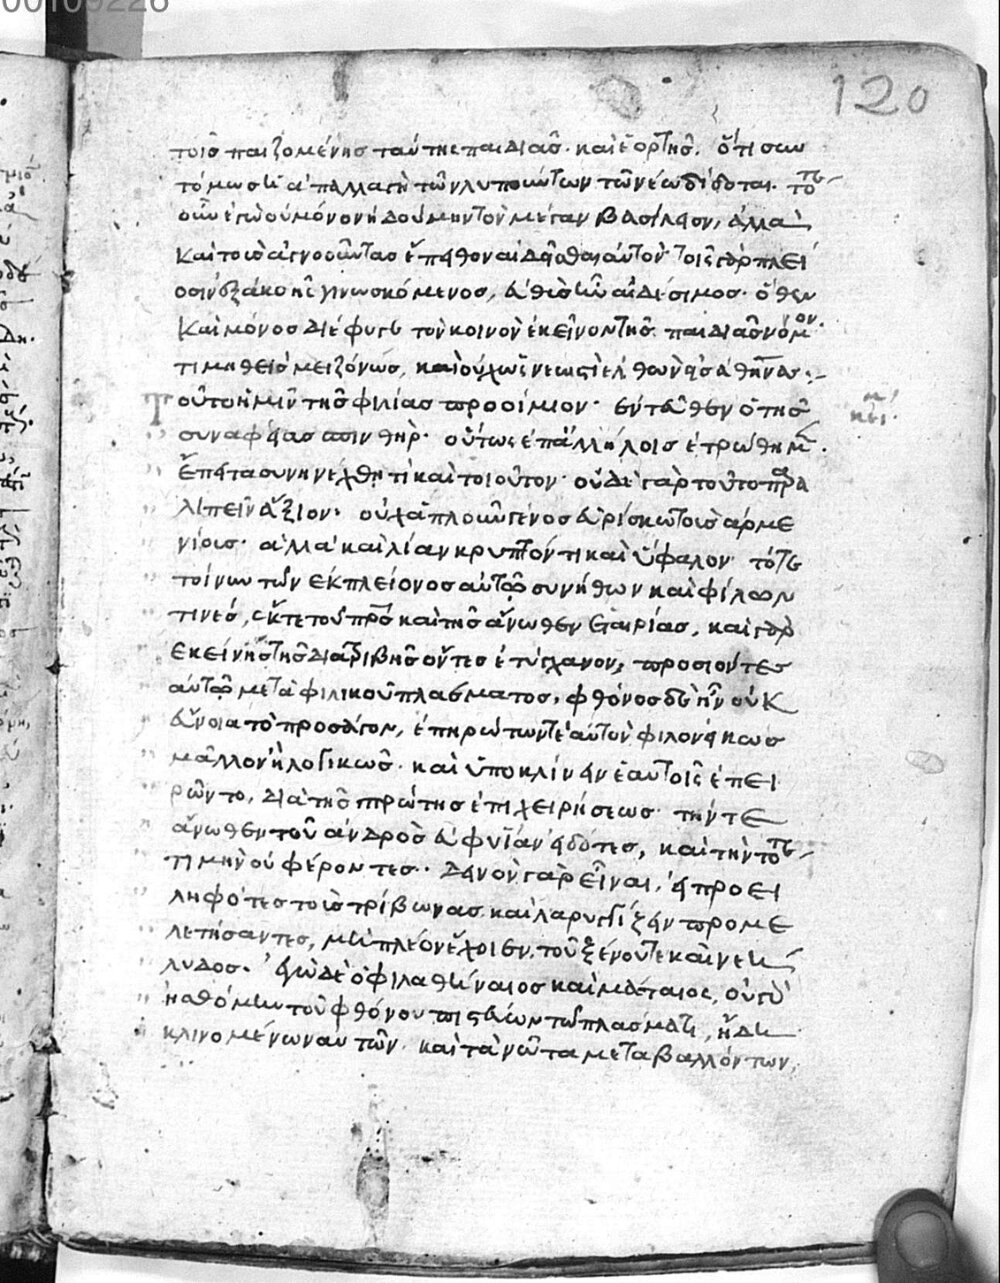 00109226
120
τοις παιζομένης ταύτης παιδιᾶς. καὶ ἑορτῆς. ὅτι συν
τόμως ἡ ἀπαλλαγὴ τῶν λυπούντων τῶν νέων δίδοται. τότε
οὖν ἐγὼ οὐ μόνον ἡδούμην τὸν μέγαν βασίλειον, ἀλλὰ
καὶ τοὺς ἀγνοοῦντας ἔπειθον αἰδεῖσθαι αὐτὸν τοῖς γὰρ πλεί
οσιν ἐξ ἀκοῆς γινωσκόμενος, εὐθὺς ἦν αἰδέσιμος. ὅθεν
καὶ μόνος διέφυγε τὸν κοινὸν ἐκεῖνον τῆς παιδιᾶς νόμον.
τιμηθεὶς μειζόνως, καὶ οὐχ ὡς νεωστὶ ἐλθὼν εἰς ἀθήνας :
Τοῦτο ἡμῖν τῆς φιλίας προοίμιον. ἐντεῦθεν ὁ τῆς
συναφείας σπινθήρ. οὕτως ἐπ' ἀλλήλοις ἐτρώθημεν.
ἔπειτα συνηνέχθη τι καὶ τοιοῦτον. οὐδὲ γὰρ τοῦτο παρα
λιπεῖν ἄξιον. οὐχ ἁπλοῦν γένος εὑρίσκω τοὺς ἀρμε
νίους. ἀλλὰ καὶ λίαν κρυπτόν τι καὶ ὕφαλον τότε
τοίνυν τῶν ἐκ πλείονος αὐτῷ συνήθων καὶ φίλων
τινές, ἔκ τε τοῦ πρς καὶ τῆς ἄνωθεν ἑταιρίας, καὶ γὰρ
ἐκείνης τῆς διατριβῆς ὄντες ἐτύγχανον, προσιόντες
αὐτῷ μετὰ φιλικοῦ πλάσματος, φθόνος δὲ ἦν οὐκ
εὔνοια τὸ προσάγον, ἐπηρώτων τε αὐτὸν φιλονείκως
μᾶλλον ἢ λογικῶς. καὶ ὑποκλίνειν ἑαυτοῖς ἐπει
ρῶντο, διὰ τῆς πρώτης ἐπιχειρήσεως. τήν τε
ἄνωθεν τοῦ ἀνδρὸς εὐφυΐαν εἰδότες, καὶ τὴν τότε
τιμὴν οὐ φέροντες. δεινὸν γὰρ εἶναι, εἰ προει
ληφότες τοὺς τρίβωνας. καὶ λαρυγγίζειν προμε
λετήσαντες, μὴ πλέον ἔχοιεν. τοῦ ξένου τε καὶ νεή
λυδος. ἐγὼ δὲ ὁ φιλαθήναιος καὶ μάταιος, οὐ γὰρ
ἠσθόμην τοῦ φθόνου πιστεύων τῷ πλάσματι, ἤδη
κλινομένων αὐτῶν. καὶ τὰ νῶτα μεταβαλλόντων,